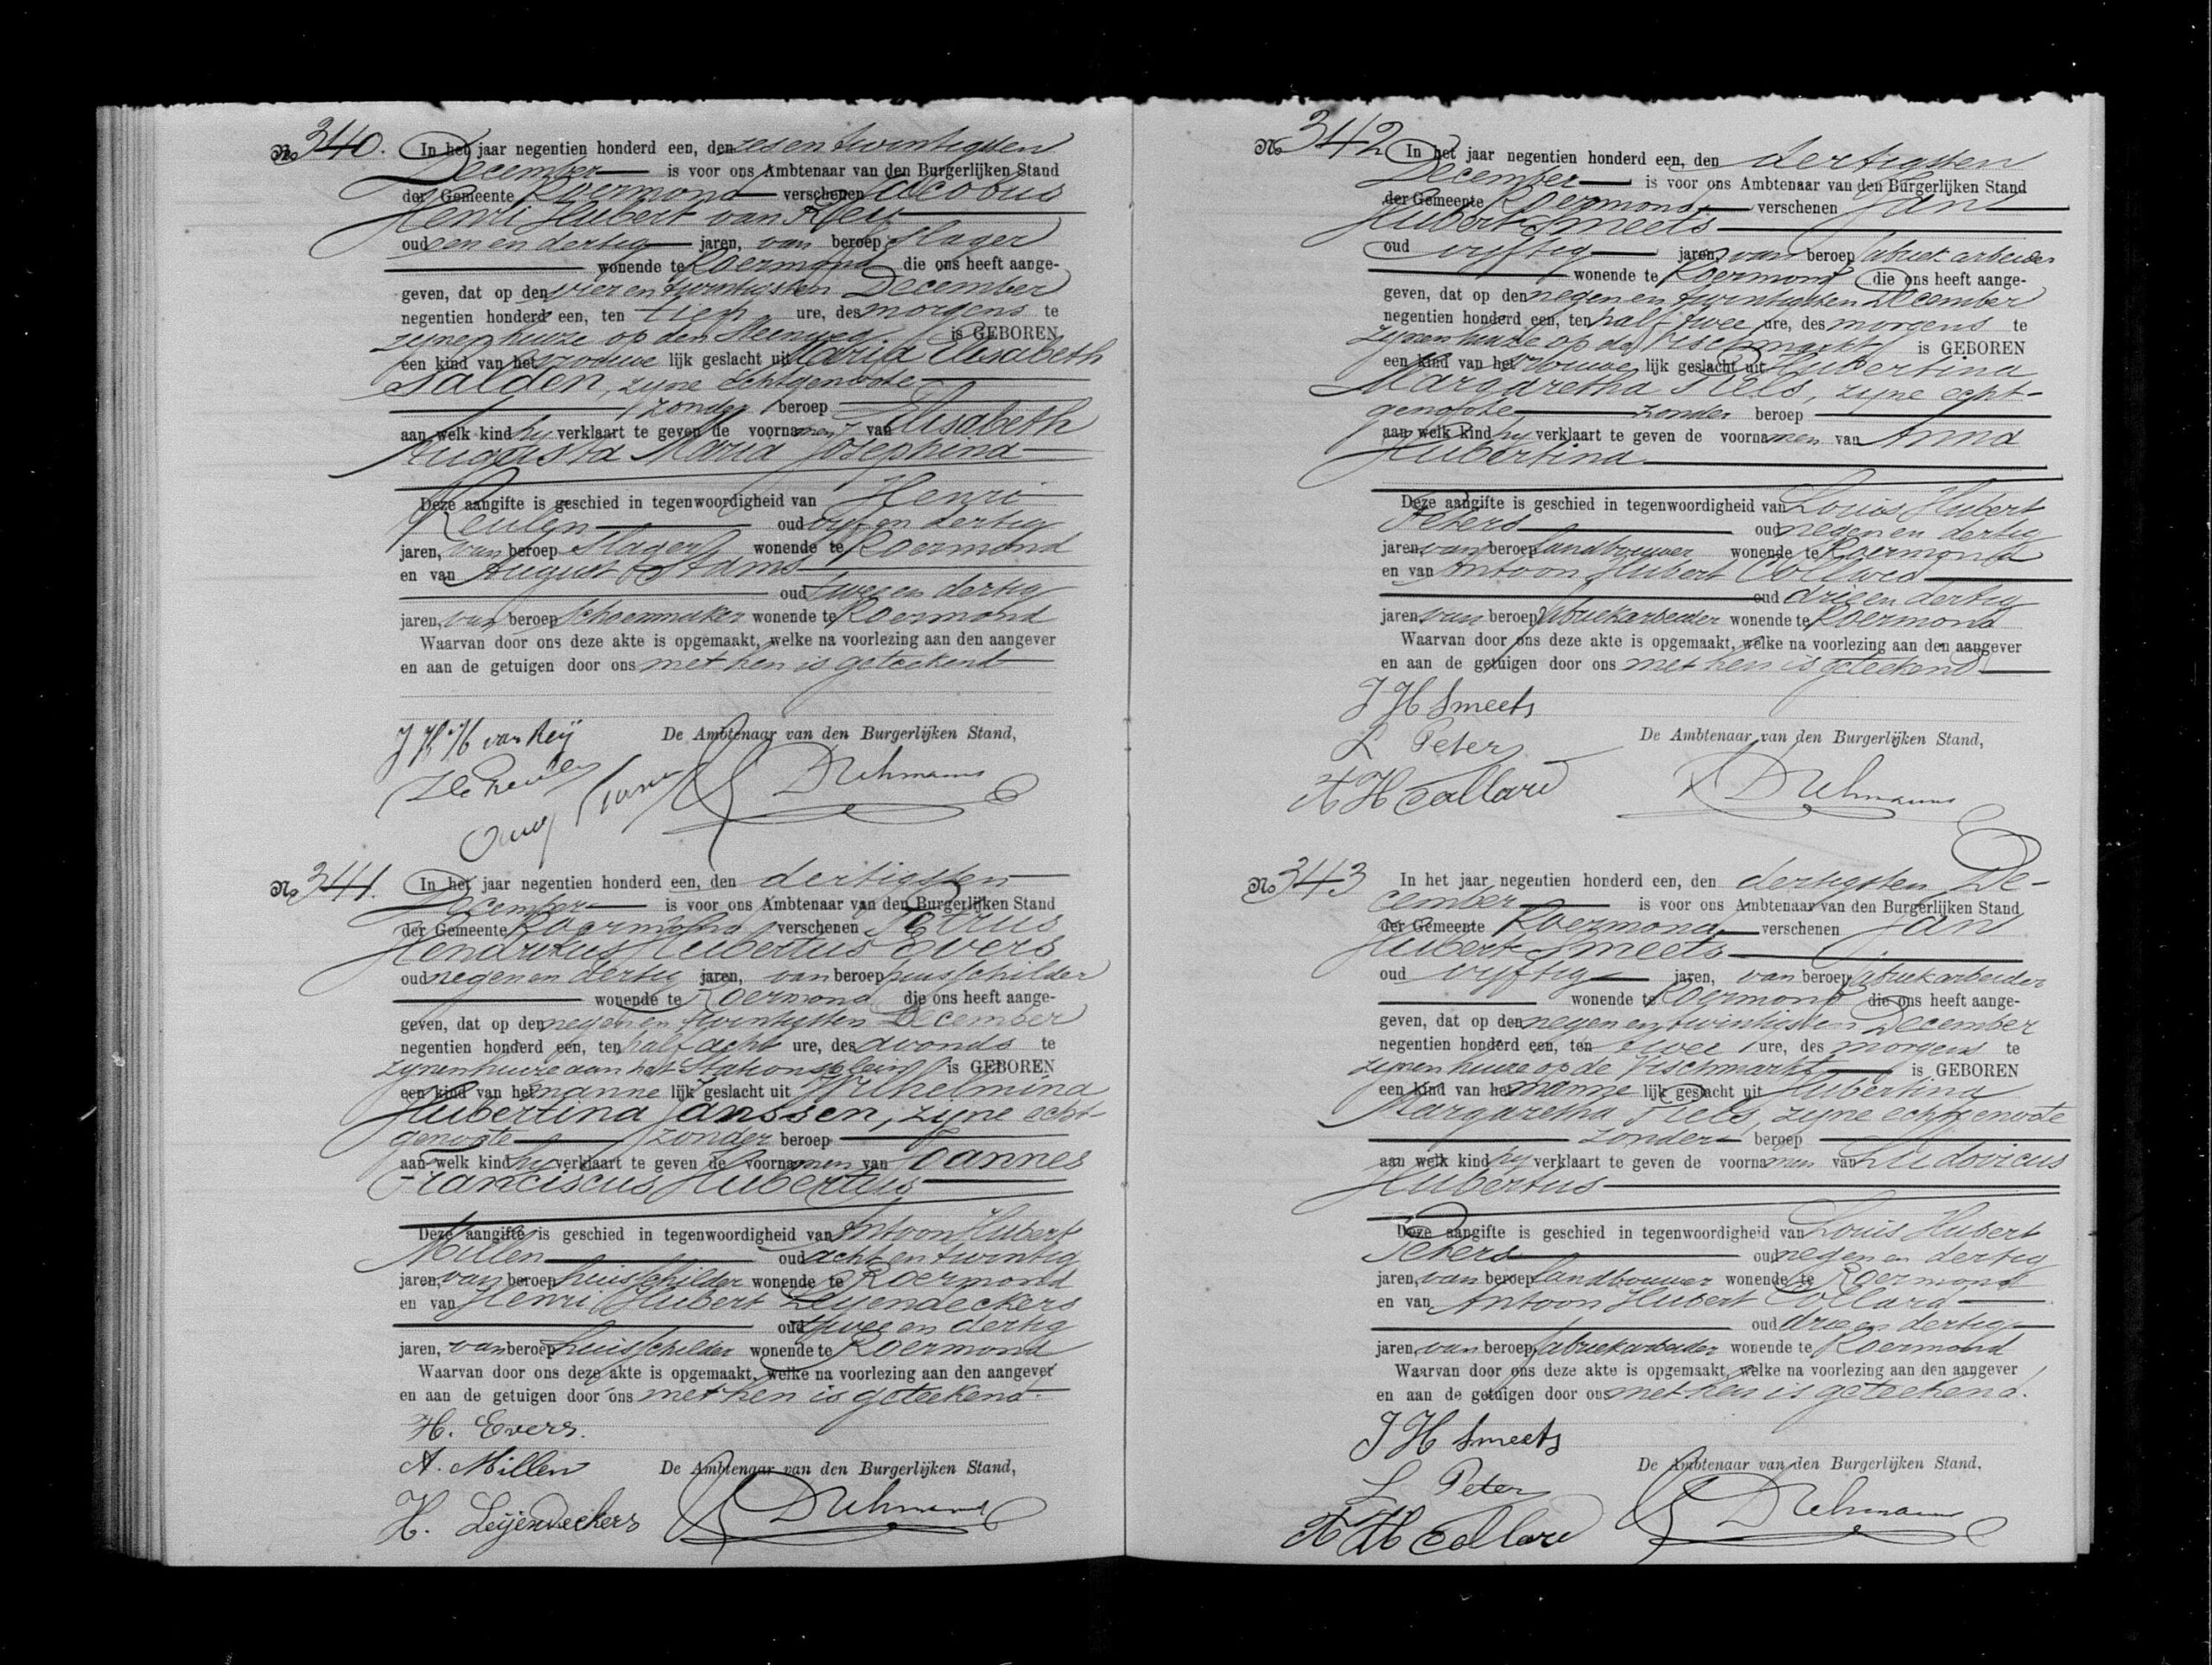 No 340. In het jaar negentien honderd een, den zesentwintigsten
December is voor ons Ambtenaar van den Burgerlijken Stand
der Gemeente Roermond verschenen Jacobus
Henri Hubert van Rey
oud een en dertig jaren, van beroep slager
wonende te Roermond die ons heeft aange-
geven, dat op den vier en twintigsten December
negentien honderd een, ten tien ure, des morgens te
zynen huize op den Steenweg is GEBOREN
een kind van het vrouwe lijk geslacht uit Maria Elisabeth
Salden, zyne echtgenoote
zonder beroep
aan welk kind hy verklaart te geven de voornamen van Elisabeth
Augusta Maria Josephina
Deze aangifte is geschied in tegenwoordigheid van Henri
Reulen oud vyf en dertig
jaren, van beroep slager wonende te Roermond
en van August Adams
oud twee en dertig
jaren, van beroep schoenmaker wonende te Roermond
Waarvan door ons deze akte is opgemaakt, welke na voorlezing aan den aangever
en aan de getuigen door ons met hen is geteekend
J H H van Reÿ
De Ambtenaar van den Burgerlijken Stand,
No 341. In het jaar negentien honderd een, den dertigsten
December is voor ons Ambtenaar van den Burgerlijken Stand
der Gemeente Roermond verschenen Petrus
Hendrikus Hubertus Evers
oud negen en dertig jaren, van beroep huisschilder
wonende te Roermond die ons heeft aange-
geven, dat op den negen en twintigsten December
negentien honderd een, ten half acht ure, des avonds te
zynen huize aan het Stationsplein is GEBOREN
een kind van het manne lijk geslacht uit Wilhelmina
Hubertina Janssen, zyne echt-
genoote zonder beroep
aan welk kind hy verklaart te geven de voornamen van Joannes
Franciscus Hubertus
Deze aangifte is geschied in tegenwoordigheid van Antoon Hubert
Millen oud acht en twintig
jaren, van beroep huisschilder wonende te Roermond
en van Henri Hubert Leyendeckers
oud twee en dertig
jaren, van beroep huisschilder wonende te Roermond
Waarvan door ons deze akte is opgemaakt, welke na voorlezing aan den aangever
en aan de getuigen door ons met hen is geteekend.
H. Evers.
A. Millen De Ambtenaar van den Burgerlijken Stand,
H. Leijendeckers
No 342 In het jaar negentien honderd een, den dertigsten
December is voor ons Ambtenaar van den Burgerlijken Stand
der Gemeente Roermond verschenen Jan
Hubert Smeets
oud vyftig jaren, van beroep fabriekarbeider
wonende te Roermond die ons heeft aange-
geven, dat op den negen en twintigsten December
negentien honderd een, ten half twee ure, des morgens te
zynen huize op de Vischmarkt is GEBOREN
een kind van het vrouwe lijk geslacht uit Hubertina
Margaretha Tiels, zyne echt-
genoote zonder beroep
aan welk kind hy verklaart te geven de voornamen van Anna
Hubertina
Deze aangifte is geschied in tegenwoordigheid van Louis Hubert
Peters oud negen en dertig
jaren, van beroep landbouwer wonende te Roermond
en van Antoon Hubert Collard
oud drie en dertig
jaren, van beroep fabriekarbeider wonende te Roermond
Waarvan door ons deze akte is opgemaakt, welke na voorlezing aan den aangever
en aan de getuigen door ons met hen is geteekend
J H Smeets
De Ambtenaar van den Burgerlijken Stand,
L Peters
A H Collard
No 343 In het jaar negentien honderd een, den dertigsten De-
cember is voor ons Ambtenaar van den Burgerlijken Stand
der Gemeente Roermond verschenen Jan
Hubert Smeets
oud vyftig jaren, van beroep fabriekarbeider
wonende te Roermond die ons heeft aange-
geven, dat op den negen en twintigsten December
negentien honderd een, ten twee ure, des morgens te
zynen huize op de Vischmarkt is GEBOREN
een kind van het manne lijk geslacht uit Hubertina
Margaretha Tiels, zyne echtgenoote
zonder beroep
aan welk kind hy verklaart te geven de voornamen van Ludovicus
Hubertus
Deze aangifte is geschied in tegenwoordigheid van Louis Hubert
Peters oud negen en dertig
jaren, van beroep landbouwer wonende te Roermond
en van Antoon Hubert Collard
oud drie en dertig
jaren, van beroep fabriekarbeider wonende te Roermond
Waarvan door ons deze akte is opgemaakt, welke na voorlezing aan den aangever
en aan de getuigen door ons met hen is geteekend.
J H Smeets
De Ambtenaar van den Burgerlijken Stand,
L Peters
A H Collard